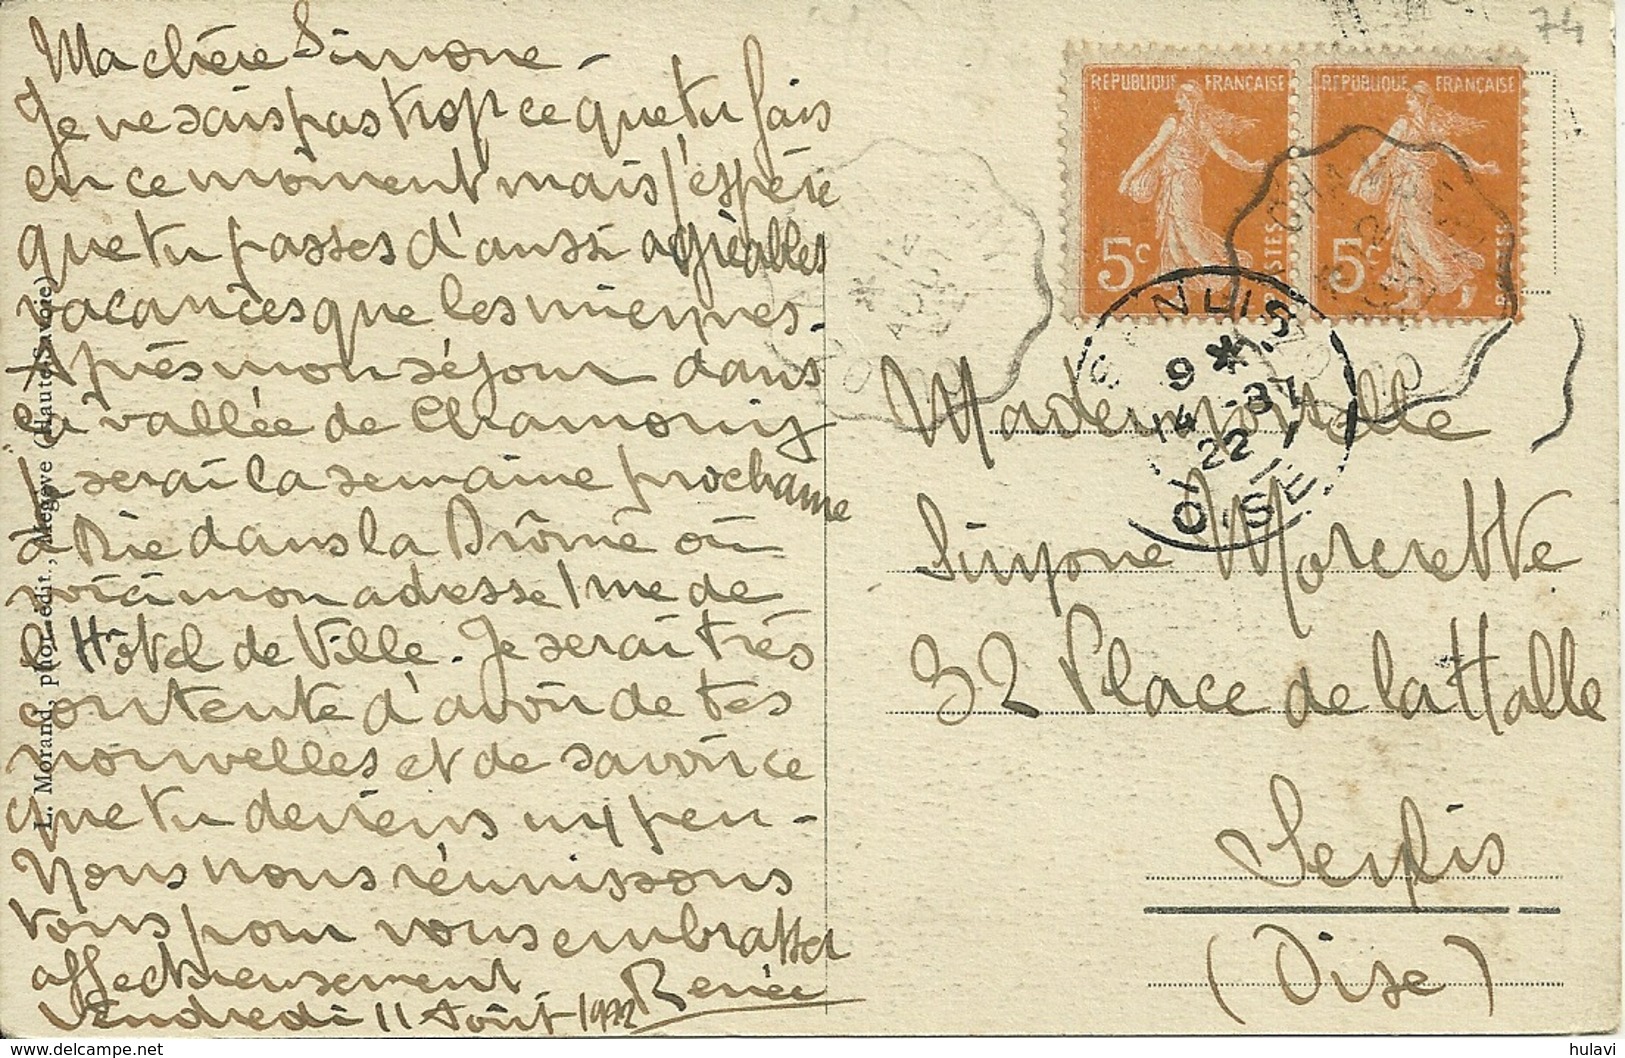 Ma chère Simone -
Je ne sais pas trop ce que tu fais
en ce moment mais j'espère
que tu passes d'aussi agréables
vacances que les miennes.
Après mon séjour dans
la vallée de Chamonix
je serai la semaine prochaine
à Die dans la Drôme où
voici mon adresse 1 rue de
l'Hôtel de Ville. Je serai très
contente d'avoir de tes
nouvelles et de savoir ce
que tu deviens un peu -
Nous nous réunissons
tous pour vous embrasser
affectueusement
Vendredi 11 Août 1922 Renée
L. Morand, phot.-édit., Megève (Haute-Savoie)
74
REPUBLIQUE FRANÇAISE
5c
POSTES
REPUBLIQUE FRANÇAISE
5c
POSTES
SENLIS
9 *
14 - 8
22
OISE
Mademoiselle
Simone Morcrette
32 Place de la Halle
Senlis
(Oise)
hulavi